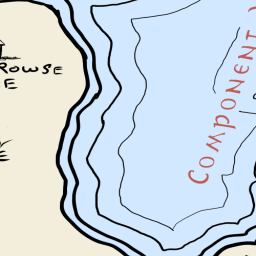 ROWSE
E
E
COMPONENT